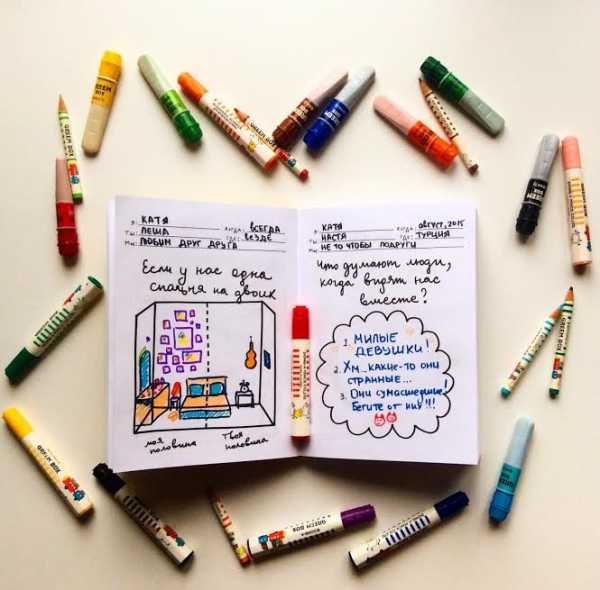 Я: КАТЯ
КОГДА: ВСЕГДА
ТЫ: ЛЕША
ГДЕ: ВЕЗДЕ
МЫ: ЛЮБИМ ДРУГ ДРУГА
Если у нас одна
спальня на двоих
моя
половина
твоя
половина
Я: КАТЯ
КОГДА: АВГУСТ, 2015
ТЫ: НАСТЯ
ГДЕ: ТУРЦИЯ
МЫ: НЕ ТО ЧТОБЫ ПОДРУГИ
Что думают люди,
когда видят нас
вместе?
1. МИЛЫЕ
ДЕВУШКИ!
2. Хм...КАКИЕ-ТО ОНИ
СТРАННЫЕ...
3. Они сумасшедшие!
Бегите от них!!!
GREEN BOX
GREEN BOX
GREEN BOX
GREEN BOX